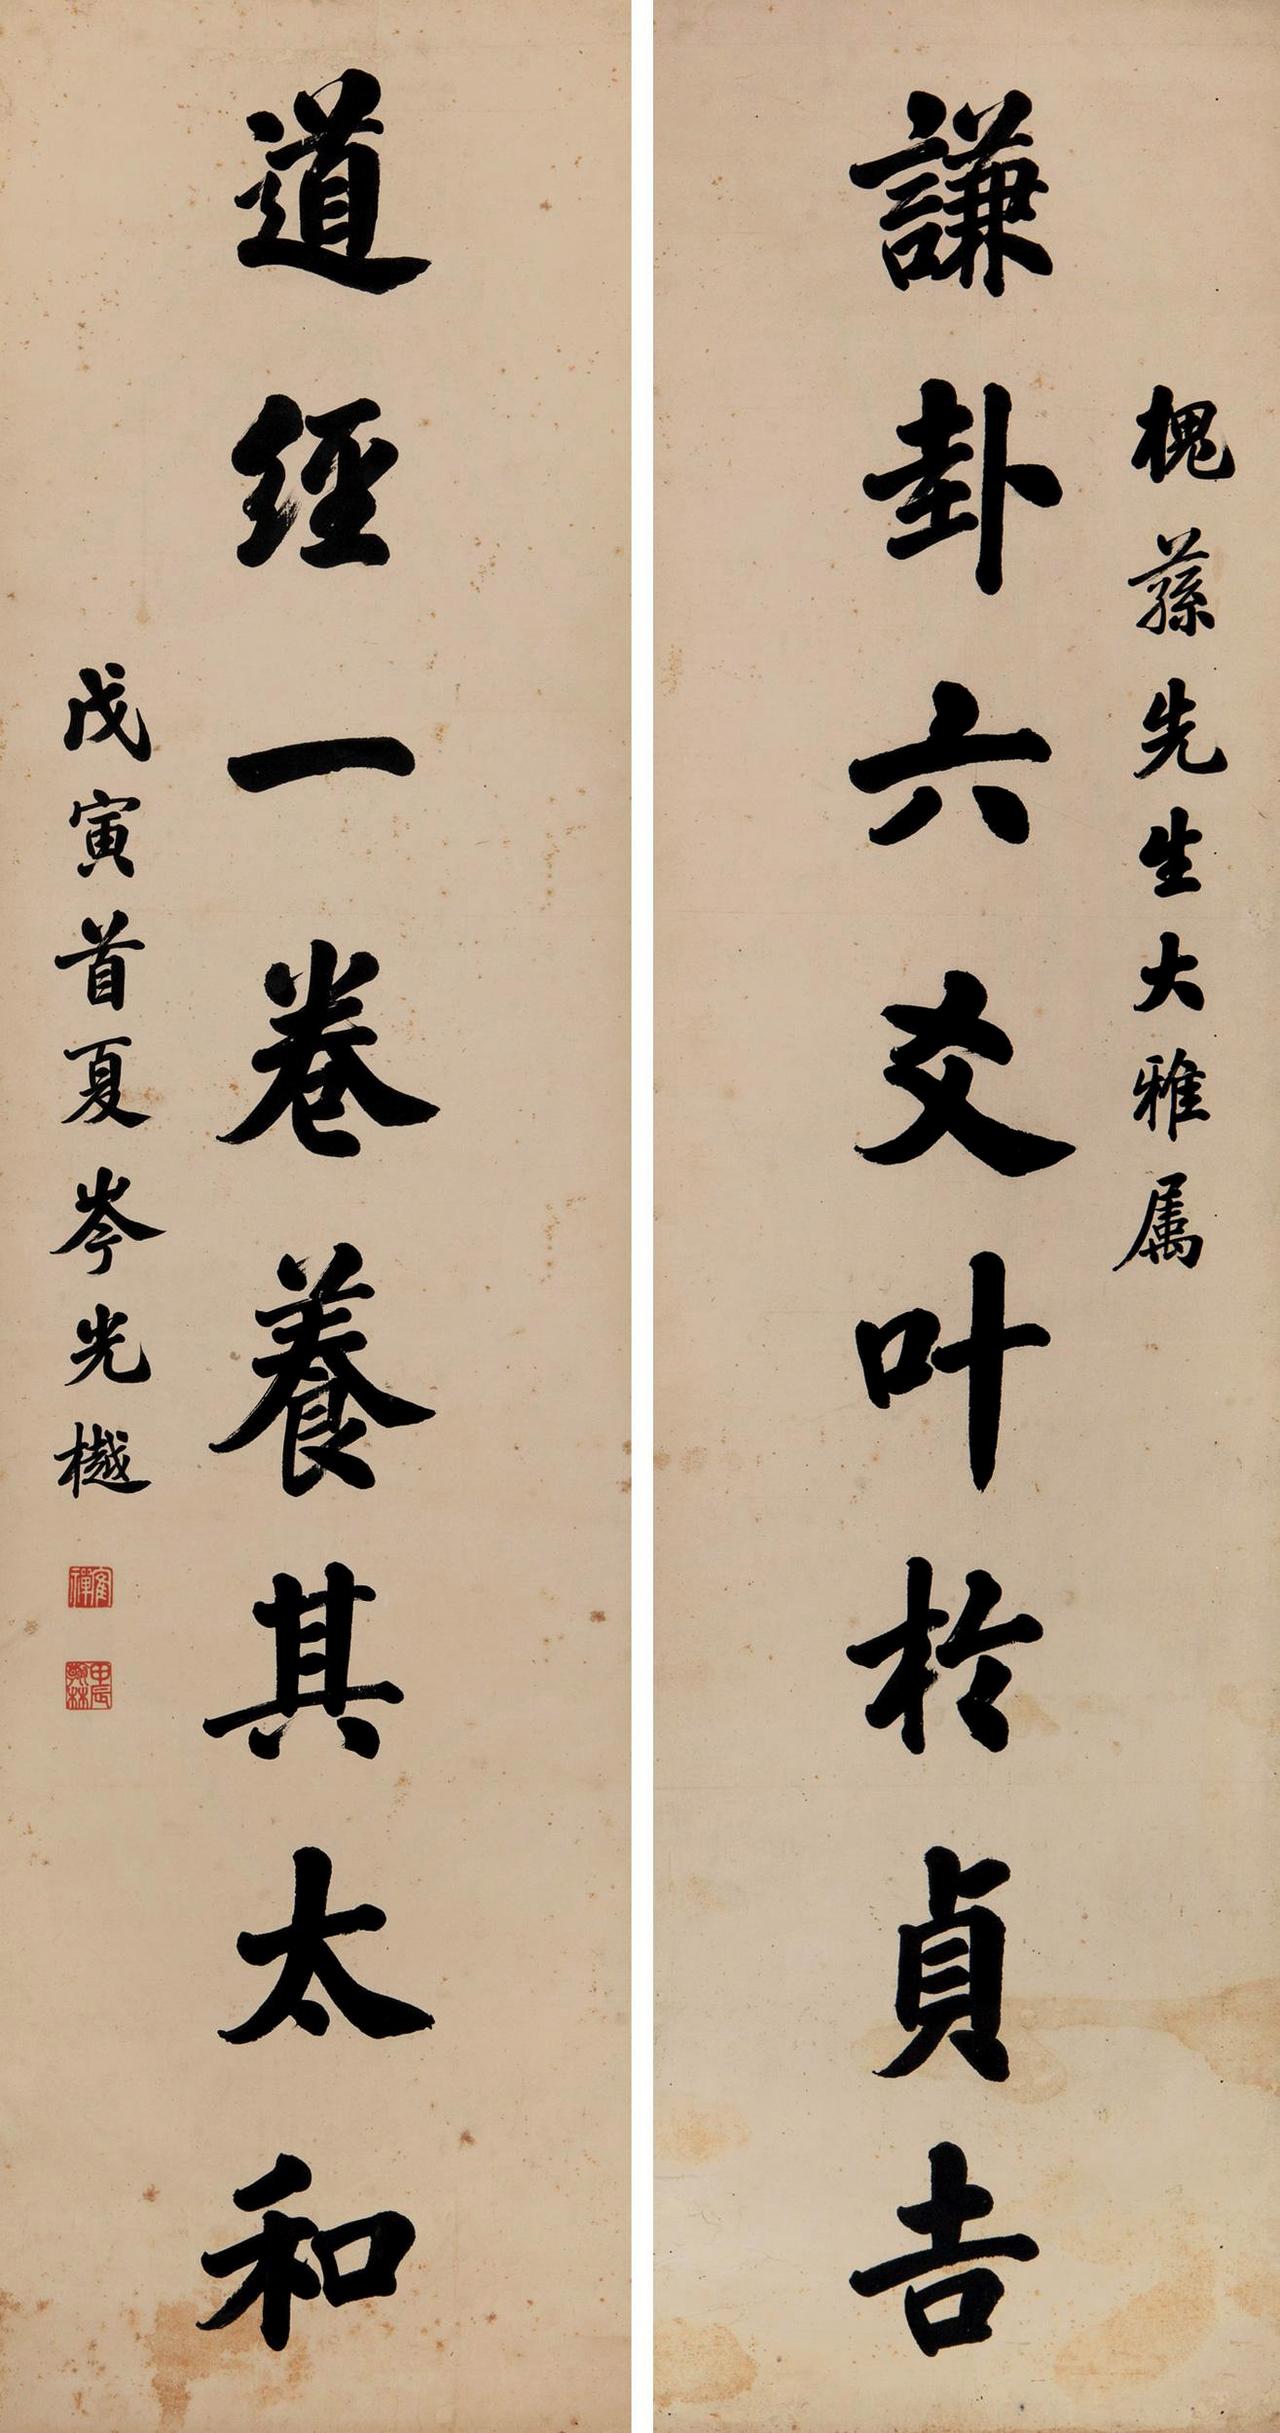 槐蓀先生大雅属
謙卦六爻叶於貞吉
道經一卷養其太和
戊寅首夏岑光樾
甲辰翰林